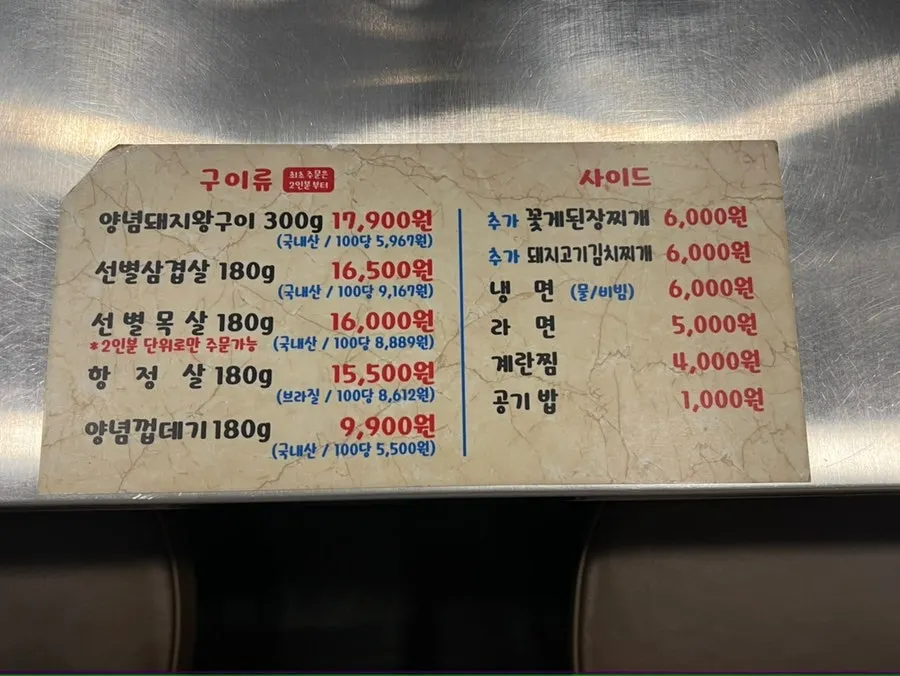 구이류 최초 주문은 2인분 부터
양념돼지왕구이 300g 17,900원
(국내산 / 100당 5,967원)
선별삼겹살 180g 16,500원
(국내산 / 100당 9,167원)
선별목살 180g 16,000원
*2인분 단위로만 주문가능 (국내산 / 100당 8,889원)
항정살 180g 15,500원
(브라질 / 100당 8,612원)
양념껍데기 180g 9,900원
(국내산 / 100당 5,500원)
사이드
추가 꽃게된장찌개 6,000원
추가 돼지고기김치찌개 6,000원
냉면 (물/비빔) 6,000원
라면 5,000원
계란찜 4,000원
공기밥 1,000원